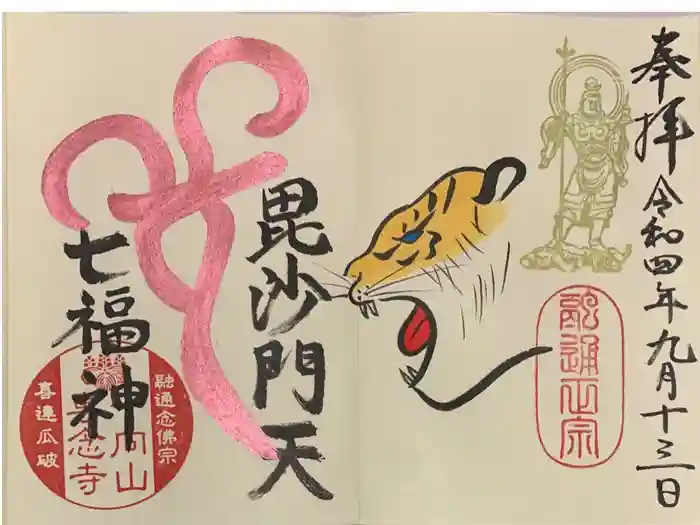 奉拝 令和四年九月十三日
融通正宗
毘沙門天
七福神
融通念佛宗
向山
来念寺
喜連瓜破